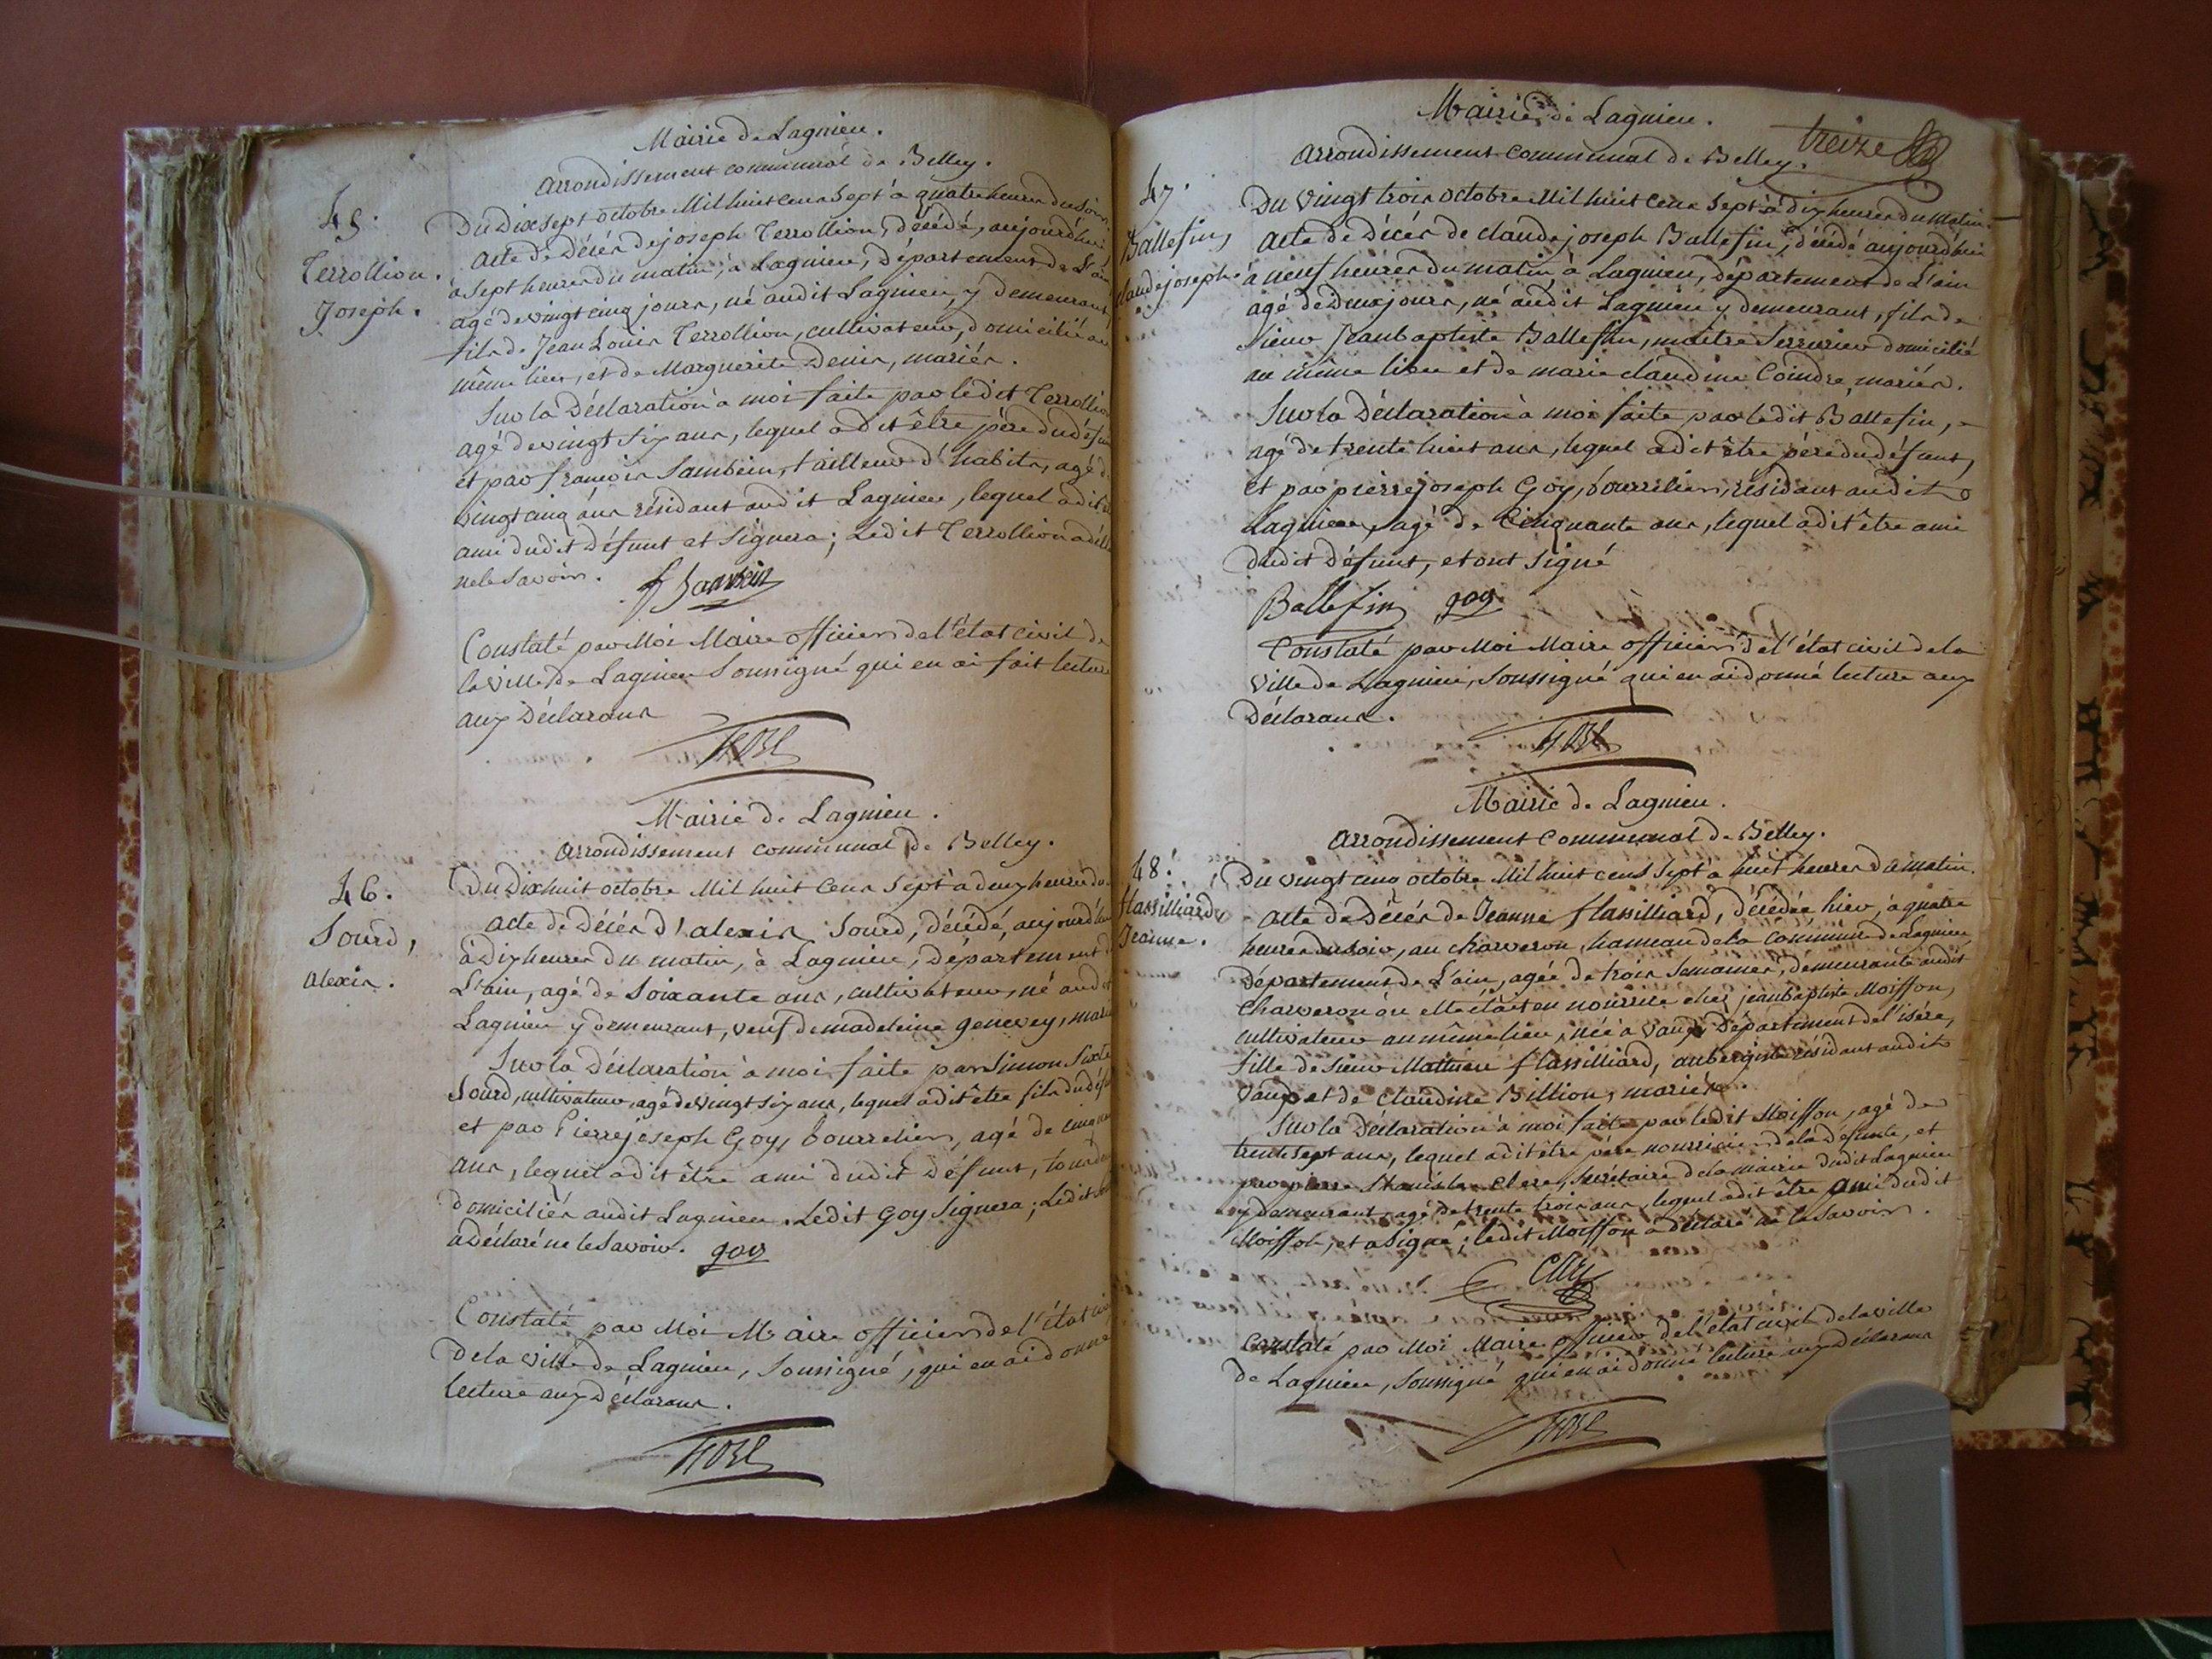 Mairie de Lagnieu.
arrondissement communal de Belley.
45.
Terrollion.
Joseph.
Du Dix sept octobre Mil huit cens sept à quatre heures du soir
acte de Décès de joseph Terrollion, décédé, aujourd'hui
à sept heures du matin, à Lagnieu, Département de L'ain
agé de vingt cinq jours, né audit Lagnieu y demeurant,
fils de Jean Louis Terrollion, cultivateur, domicilié au
même lieu, et de Marguerite Denis, mariés.
Sur la Déclaration à moi faite par ledit Terrollion
agé de vingt six ans, lequel a dit être père du défunt
et par françois Sambein, tailleur d'habits, agé de
vingt cinq ans résidant audit Lagnieu, lequel a dit
ami dudit défunt et signera; Ledit Terrollion a déclaré
ne le savoir. f Sambein
Constaté par Moi Maire officier de l'état civil de
la ville de Lagnieu soussigné qui en ai fait lecture
aux Déclarans
Mairie de Lagnieu.
arrondissement communal de Belley.
46.
Sourd,
alexis.
Du Dix huit octobre Mil huit Cens Sept à deux heures du
acte de Décès d'alexis Sourd, décédé, aujourd'hui
à Dix heures du matin, à Lagnieu, Département de
L'ain, agé de soixante ans, cultivateur, né audit
Lagnieu y demeurant, veuf de madeleine genevey, mariés
Sur la Déclaration à moi faite par Simon Sixte
Sourd, cultivateur, agé de vingt six ans, lequel a dit être fils du défunt
et par Pierre joseph Goy, bourrelier, agé de cinquante
ans, lequel a dit être ami dudit Défunt, tous deux
domiciliés audit Lagnieu. Ledit Goy signera; Ledit Sourd
a déclaré ne le savoir. goy
Constaté par Moi Maire officier de l'état civil
de la ville de Lagnieu, soussigné, qui en ai donné
lecture aux Déclarans.
Mairie de Lagnieu.
treize
arrondissement communal de Belley.
47.
Ballefin,
claude joseph.
Du vingt trois octobre Mil huit Cens Sept à dix heures du matin.
acte de Décès de claude joseph Ballefin, décédé aujourd'hui
à neuf heures du matin à Lagnieu, département de L'ain
agé de deux jours, né audit Lagnieu y demeurant, fils de
sieur Jean baptiste Ballefin, maître serrurier domicilié
au même lieu et de marie claudine Coindre mariés.
Sur la Déclaration à moi faite par ledit Ballefin,
agé de trente huit ans, lequel a dit être père du défunt,
et par pierre joseph Goy, bourrelier, résidant audit
Lagnieu, agé de Cinquante ans, lequel a dit être ami
dudit Défunt, et ont signé
Ballefin goy
Constaté par Moi Maire officier de l'état civil de la
ville de Lagnieu, soussigné qui en ai donné lecture aux
Déclarans.
Mairie de Lagnieu.
arrondissement Communal de Belley.
48.
flassilliard
Jeanne.
Du vingt cinq octobre Mil huit cens sept à huit heures du matin.
acte de Décès de Jeanne flassilliard, décédée hier, à quatre
heures du soir, au charveron, hameau de la commune de Lagnieu
département de L'ain, agée de trois semaines, demeurante audit
Charveron où elle était en nourrice chez jean baptiste Moiffon,
cultivateur au même lieu, née à vaux Département de l'isère,
fille de sieur Mathieu flassilliard, aubergiste résidant audit
vaux et de Claudine Billion, mariés.
Sur la Déclaration à moi faite par ledit Moiffon, agé de
trente sept ans, lequel a dit être père nourricier de la défunte, et
par pierre Stanislas Clerc, secrétaire de la mairie dudit Lagnieu
y demeurant, agé de trente trois ans, lequel a dit être ami dudit
Moiffon, et a signé; ledit Moiffon a déclaré ne le savoir.
Constaté par Moi Maire officier de l'état civil de la ville
de Lagnieu, soussigné qui en ai donné lecture aux Déclarans